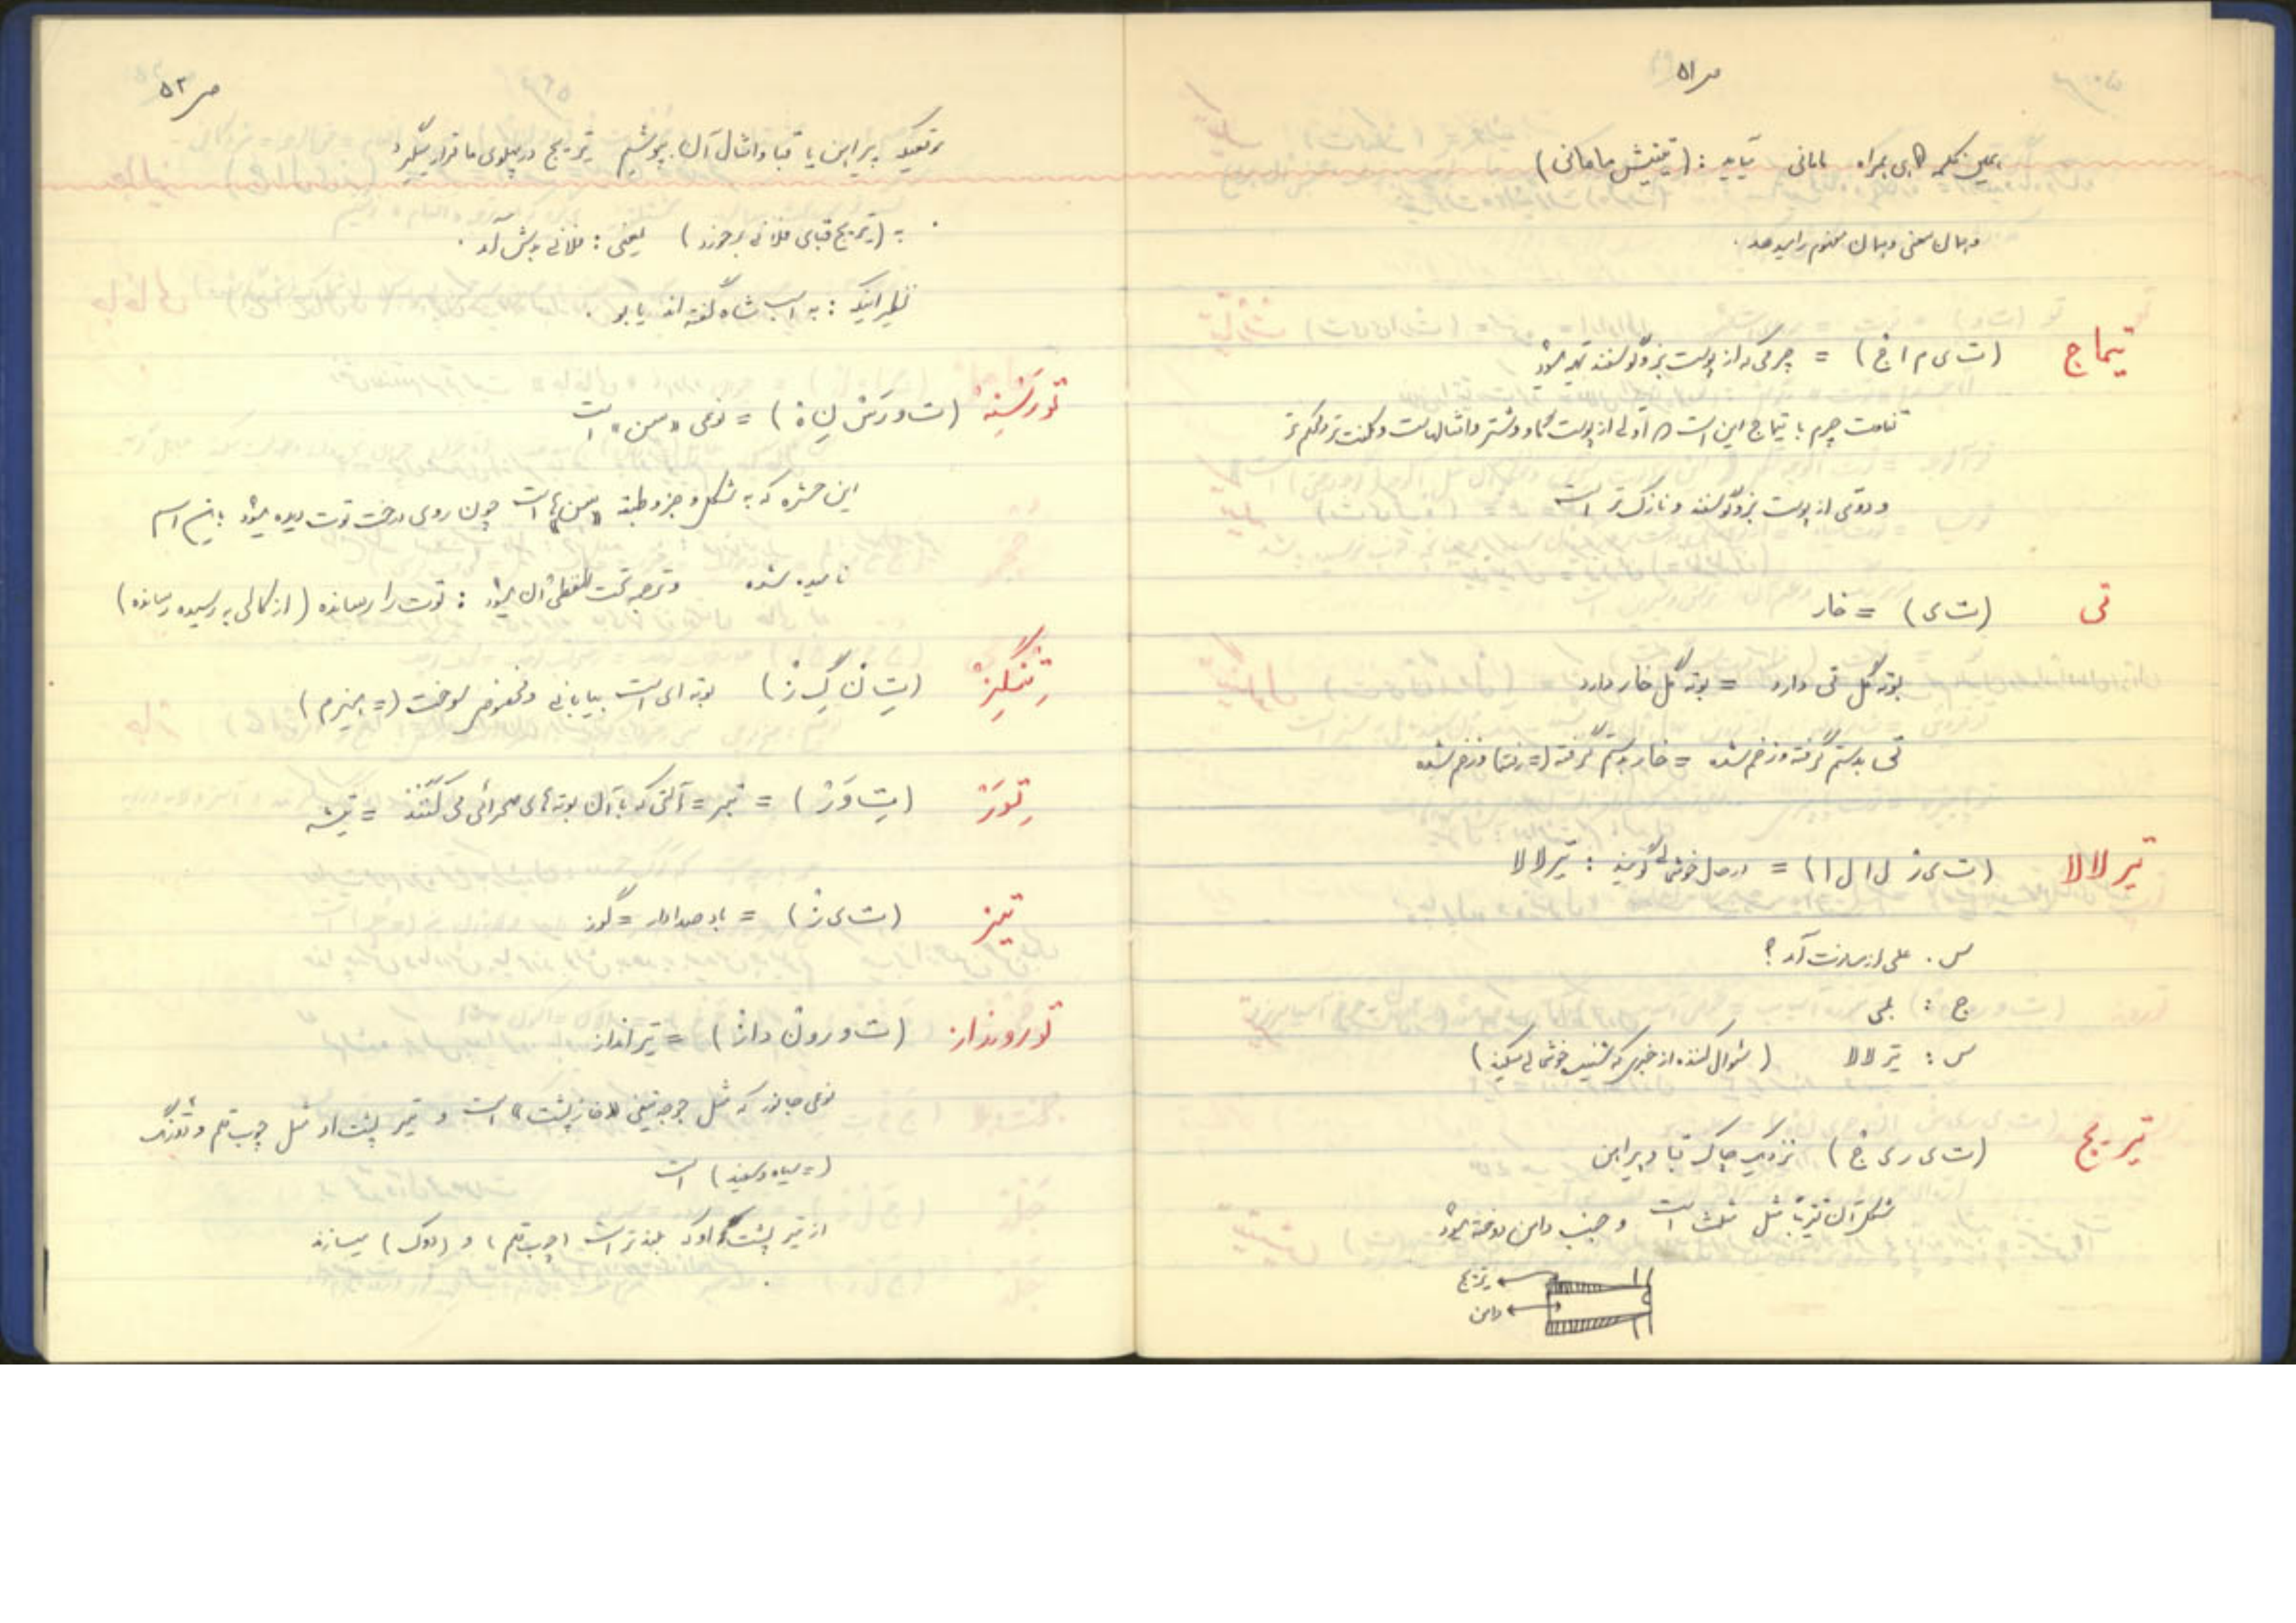 ص ۵۱
همین کلمه گاهی همراه مامانی میآید : (تیتیش مامانی)
و همان معنی و همان مفهوم را میدهد .
تیماج (ت ی م ا ج) = چرمی که از پوست بز و گوسفند تهیه میشود
تفاوت چرم با تیماج این است که اولی از پوست گاو و شتر و امثالهاست و کلفت تر و محکم تر
و دومی از پوست بز و گوسفند و نازک تر است
تی (ت ی) = خار
بوته گل تی دارد = بوته گل خار دارد
تی بدستم گرفته و زخم شده = خار بدستم گرفته (= رفته) و زخم شده
تیر لالا (ت ی ر ل ا ل ا) = در حال خوشحالی گویند : تیر لالا
س . علی از مسافرت آمد ؟
ج : بلی
س : تیر لالا (سئوال کننده از خبری که شنیده خوشحالی میکند)
تیریج (ت ی ر ی ج) نزدیک چاک قبا و پیراهن
شکل آن تقریباً مثل مثلث است و جنب دامن دوخته میشود
تیریج
دامن
ص ۵۲
وقتیکه پیراهن یا قبا و امثال آن بپوشیم تیریج در پهلوی ما قرار میگیرد
به (تیریج قبای فلانی برخورد) یعنی : فلانی بدش آمد .
نظیر اینکه : به اسب شاه گفته اند یابو .
تورَسْنِهْ (ت و رَ سْ نِ هْ) = نوعی «سن» است
این حشره که به شکل و جزو طبقه «سن» هاست چون روی درخت توت دیده میشود باین اسم
نامیده شده و ترجمه تحت اللفظی آن میشود : توت را رسانده (از کالی به رسیده رسانده)
تِنْگِزْ (تِ نْ گِ زْ) بوته ای است بیابانی و مخصوص سوخت (= هیزم)
تِوَرْ (تِ وَ رْ) = تبر = آلتی که با آن بوته های صحرائی می کَنَند = تیشه
تیز (ت ی ز) = باد صدادار = گوز
تورونداز (ت و ر و ن د ا ز) = تیر انداز
نوعی جانور که مثل جوجه تیغی «خارپشت» است و تیر پشت او مثل چوب قلم و دورنگ
(= سیاه و سفید) است
از تیر پشت او که بلندتر است (چوب قلم) و (دوک) میسازند